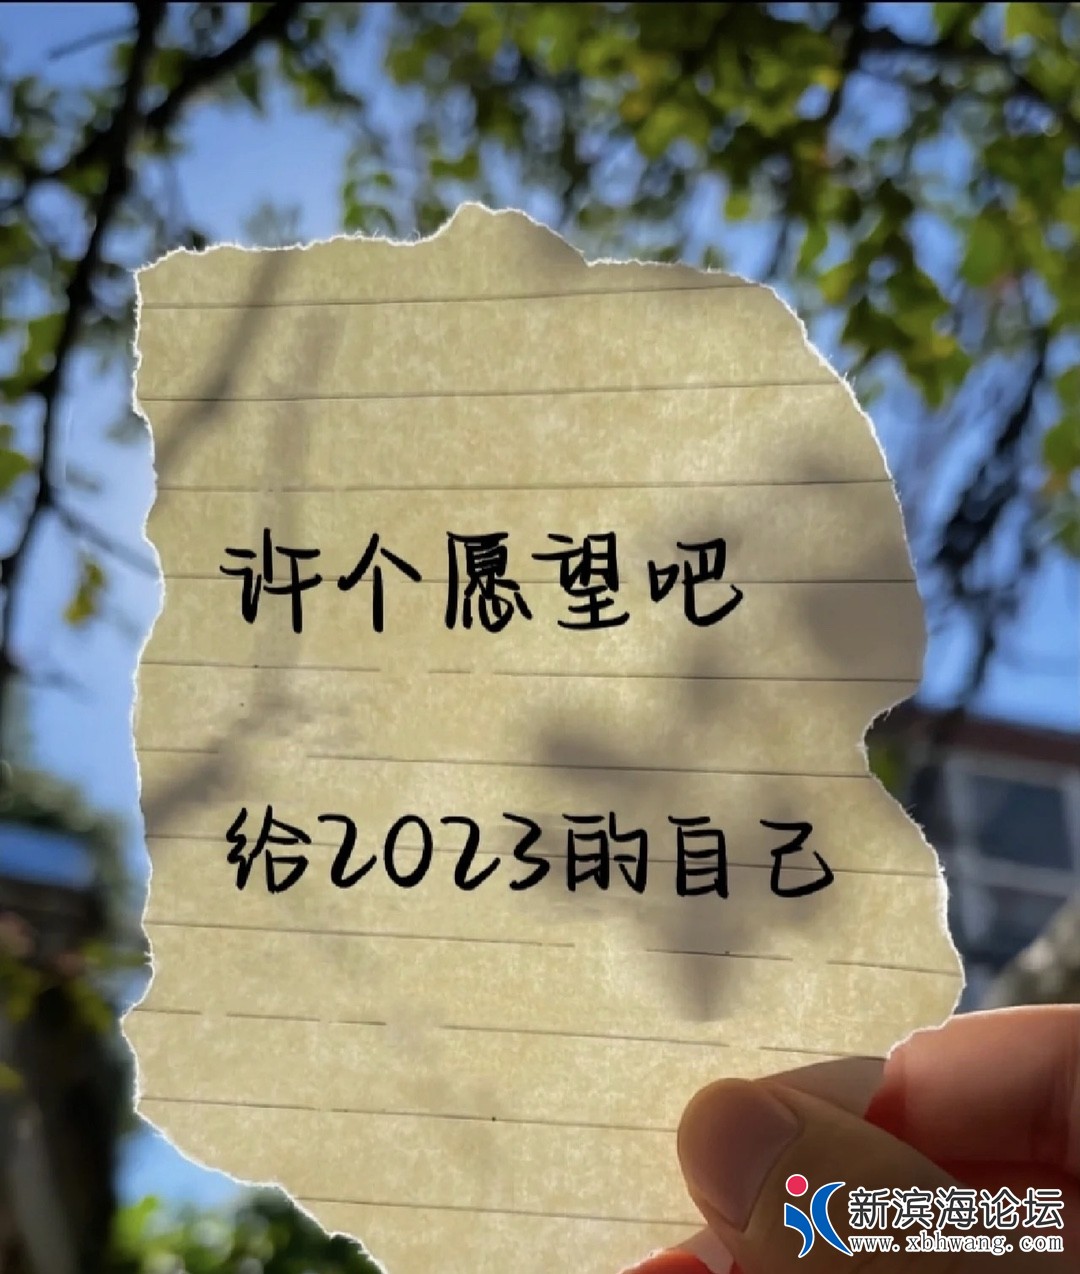 许个愿望吧
给2023的自己
新滨海论坛
www.xbhwang.com